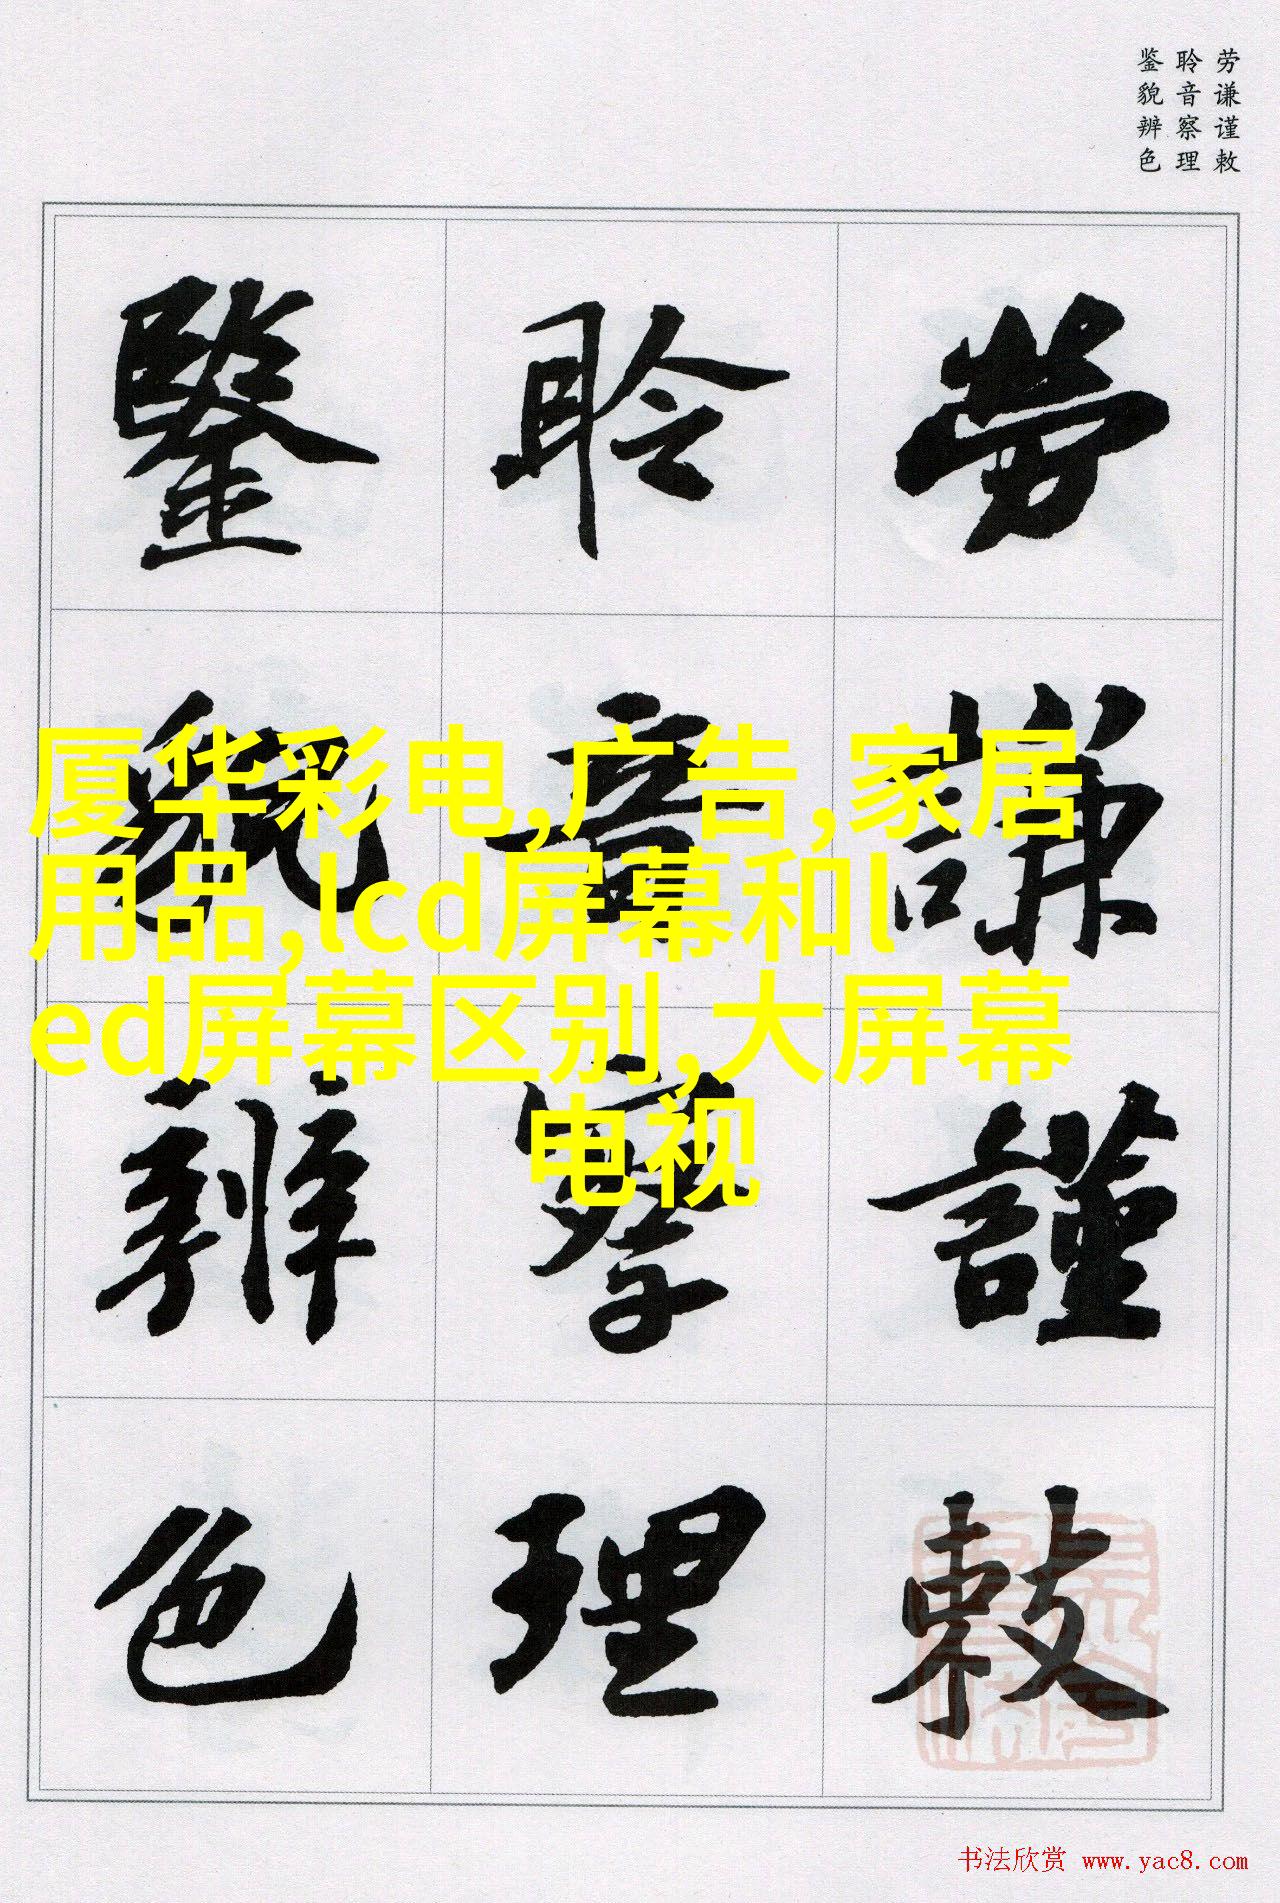 劳谦谨敕
聆音察理
鉴貌辨色
勞謙謹敕
聆音察理
鑒貌辨色
厦华彩电,广告,家居
用品,lcd屏幕和l
ed屏幕区别,大屏幕
电视
书法欣赏 www.yac8.com